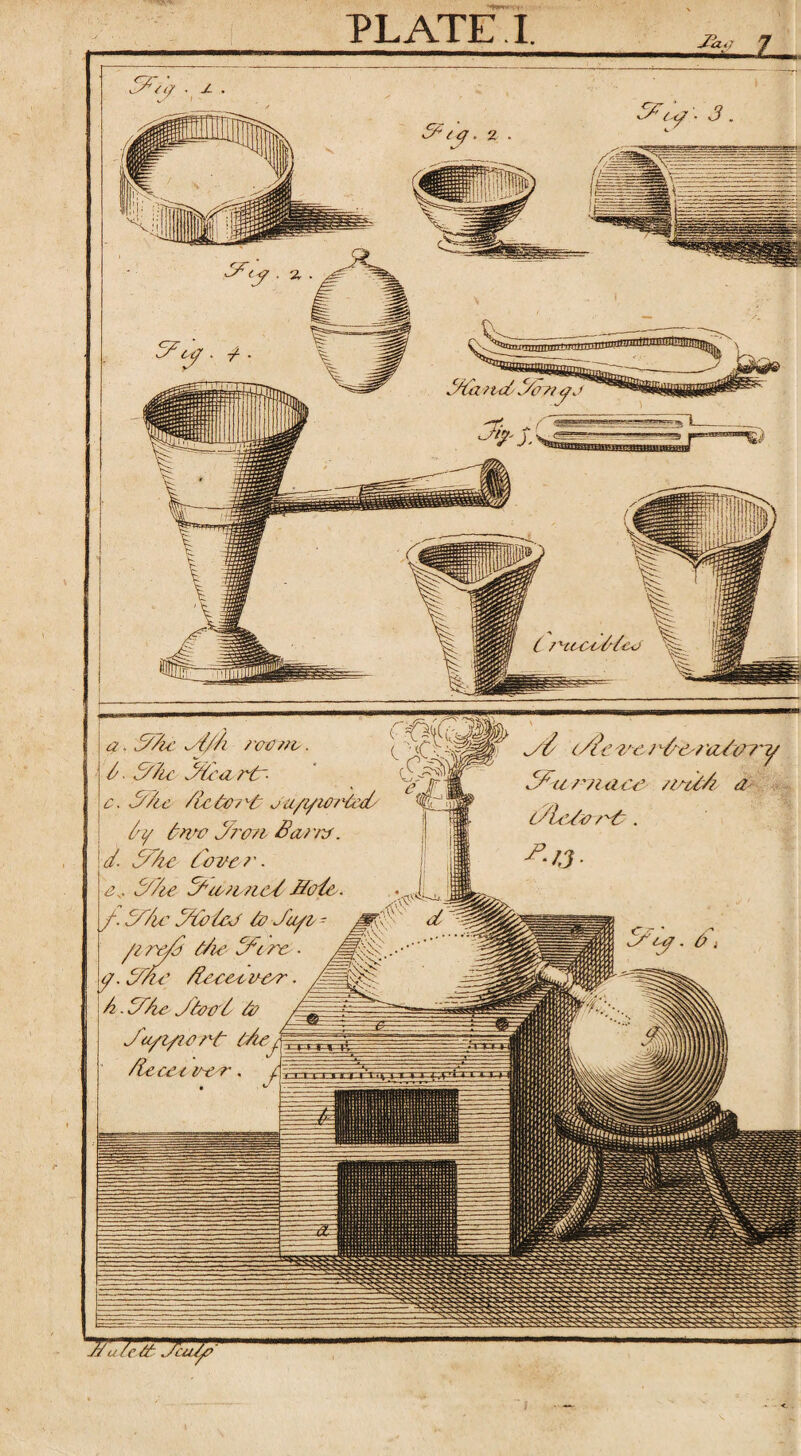 PLATE.I.
Pag 7
Fig. 1.
Fig. 2.
Fig. 3.
Fig. 2.
Fig. 4.
Hand Tongs
Fig. 5.
Crucibles
a. The Aſh room.
b. The Heart.
c. The Retort supported
by two Iron Barrs.
d. The Cover.
e. The Funnel Hole.
f. The Holes to Sup=
preſs the Fire.
g. The Receiver.
h. The Stool to
Support the
Receiver.
A Reverberatory
Furnace with a
Retort.
P.13.
Fig. 6.
e
d
c
f
f
g
b
a
h
Hulett Sculp